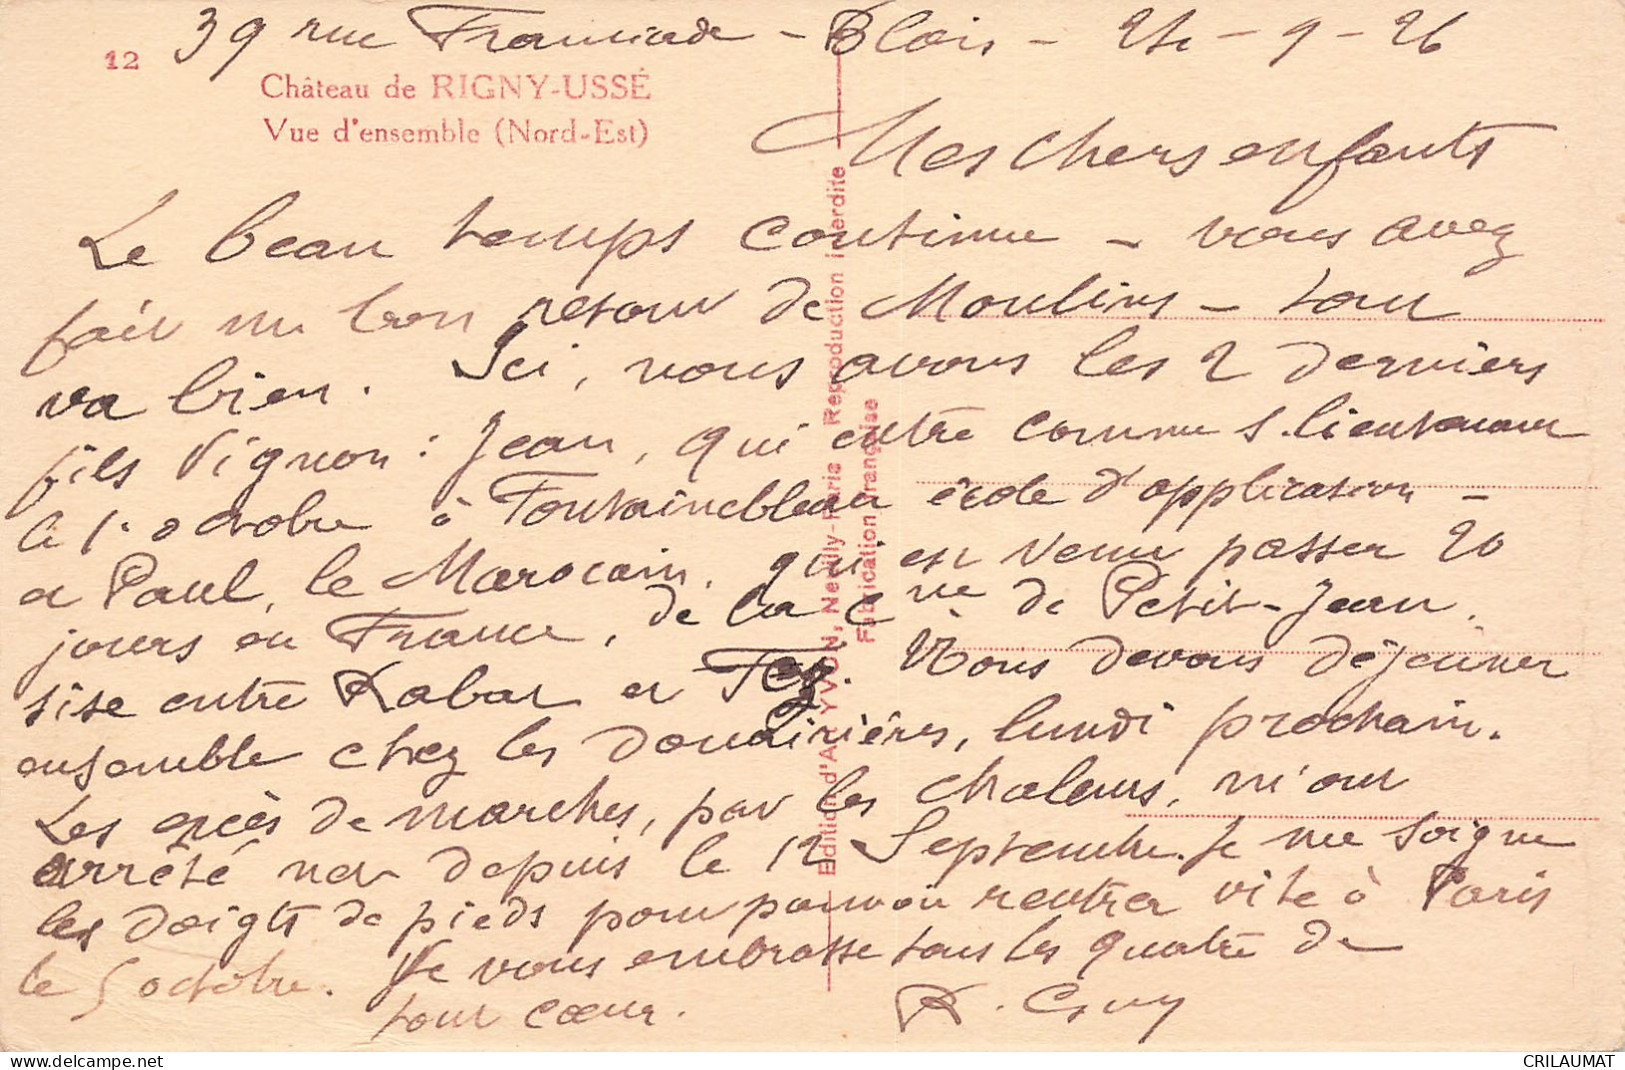 39 rue Franciade - Blois - 24 - 9 - 26
12
Château de RIGNY-USSÉ
Vue d'ensemble (Nord-Est)
Mes chers enfants
Le beau temps continue - vous avez
fait un bon retour de Moulins - tout
va bien. Ici, nous avons les 2 derniers
fils Vignon : Jean, qui entre comme s. lieutenant
le 1er octobre à Fontainebleau école d'application -
et Paul, le Marocain, qui est venu passer 20
jours en France, de la Cnie de Petit-Jean,
sise entre Rabat et Fez. Nous devons déjeuner
ensemble chez les douairières, lundi prochain.
Les excès de marches, par les chaleurs, m'ont
arrêté net depuis le 12 Septembre. Je me soigne
les doigts de pieds pour pouvoir rentrer vite à Paris
le 5 octobre. Je vous embrasse tous les quatre de
tout cœur.
R. Guy
Edition d'Art YVON, Neuilly-Paris Reproduction interdite
Fabrication Française
delcampe.net
CRILAUMAT